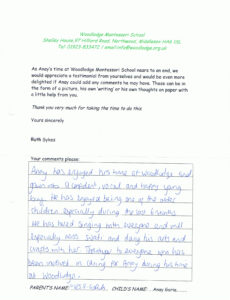 Woodlodge Montessori School
Shelley House, 87 Hilliard Road, Northwood, Middlesex HA6 1SL
Tel: 01923 833472 / email: info@woodlodge.org.uk
As Anay's time at Woodlodge Montessori School nears to an end, we
would appreciate a testimonial from yourselves and would be even more
delighted if Anay could add any comments he may have. These can be in
the form of a picture, his own 'writing' or his own thoughts on paper with
a little help from you.
Thank you very much for taking the time to do this
Yours sincerely
Ruth Sykes
Your comments please:
Anay has enjoyed his time at woodlodge and
grown into a confident, vocal and happy young
boy. He has enjoyed being one of the older
children especially during the last 6 months.
He has loved singing with everyone and will
especially miss and doing his arts and
crafts with her. Thankyou to everyone who has
been involved in caring for Anay during his time
at Woodlodge.
PARENT'S NAME: CHILD'S NAME: Anay Goria